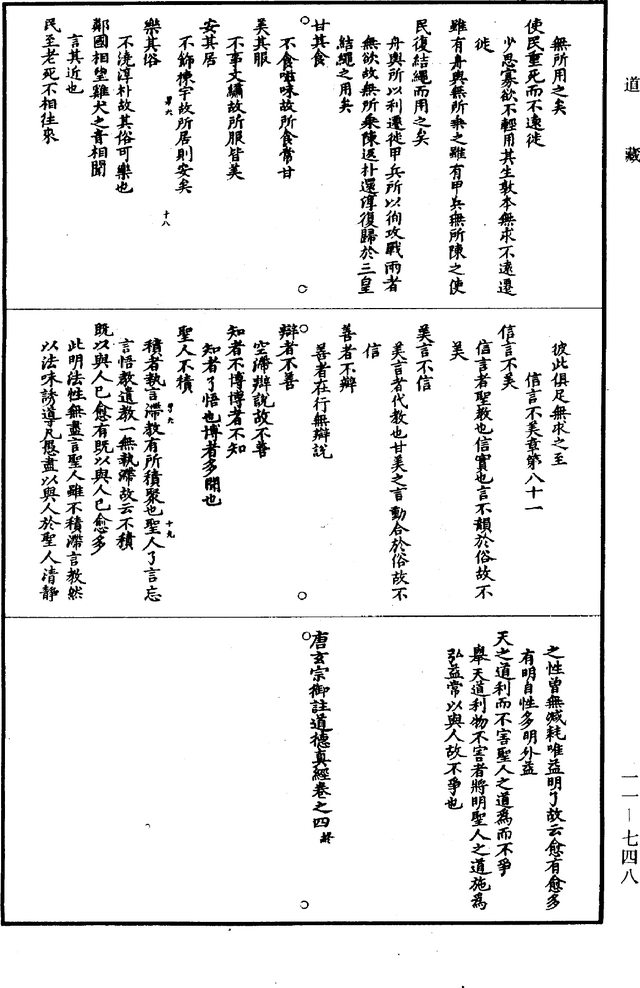 道藏
無所用之矣
使民重死而不遠徙
少思寡欲不輕用其生敦本無求不遠遷
徙
雖有舟輿無所乘之雖有甲兵無所陳之使
民復結繩而用之矣
舟輿所以利遷徙甲兵所以徇攻戰兩者
無欲故無所乘陳返朴還淳復歸於三皇
結繩之用矣
甘其食
不食滋味故所食常甘
美其服
不事文繡故所服皆美
安其居
不飾棟宇故所居則安矣
樂其俗
十八
不澆淳朴故其俗可樂也
鄰國相望雞犬之音相聞
言其近也
民至老死不相往來
彼此俱足無求之至
信言不美章第八十一
信言不美
信言者聖教也信實也言不韻於俗故不
美
美言不信
美言者代教也甘美之言動合於俗故不
信
善者不辯
善者在行無辯說
辯者不善
空滯辯說故不善
知者不博博者不知
知者了悟也博者多聞也
聖人不積
十九
積者執言滯教有所積聚也聖人了言忘
言悟教遺教一無執滯故云不積
既以與人己愈有既以與人己愈多
此明法性無盡言聖人雖不積滯言教然
以法味誘導凡愚盡以與人於聖人清靜
之性曾無減耗唯益明了故云愈有愈多
有明自性多明外益
天之道利而不害聖人之道為而不爭
舉天道利物不害者將明聖人之道施為
弘益常以與人故不爭也
唐玄宗御註道德真經卷之四終
一一—七四八